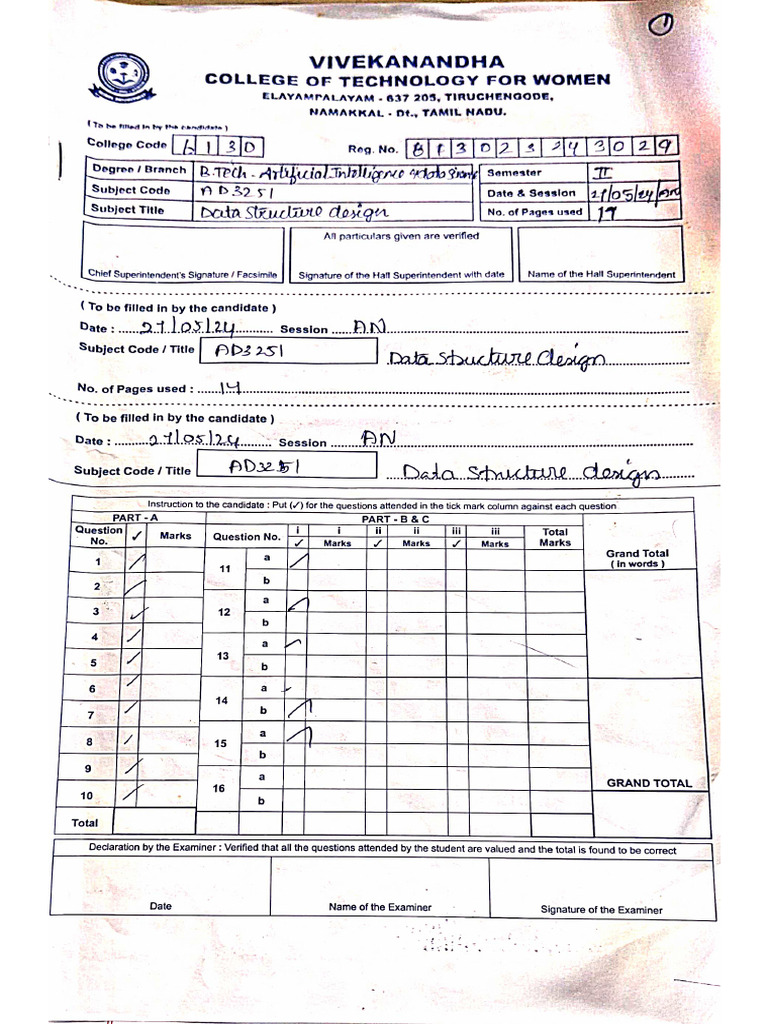 1
VIVEKANANDHA
COLLEGE OF TECHNOLOGY FOR WOMEN
ELAYAMPALAYAM - 637 205, TIRUCHENGODE,
NAMAKKAL - Dt., TAMIL NADU.
( To be filled in by the candidate )
College Code 6130 Reg. No. 613023243029
Degree / Branch B.Tech - Artificial Intelligence Semester II
Subject Code AD3251 Date & Session 27/05/24/AN
Subject Title Data Structure design No. of Pages used 14
All particulars given are verified
Chief Superintendent's Signature / Facsimile Signature of the Hall Superintendent with date Name of the Hall Superintendent
( To be filled in by the candidate )
Date : 27/05/24 Session AN
Subject Code / Title AD3251 Data Structure design
No. of Pages used : 14
( To be filled in by the candidate )
Date : 27/05/24 Session AN
Subject Code / Title AD3251 Data Structure design
Instruction to the candidate : Put (✓) for the questions attended in the tick mark column against each question
PART - A PART - B & C
Question No. ✓ Marks Question No. i ✓ i Marks ii ✓ ii Marks iii ✓ iii Marks Total Marks Grand Total ( in words )
1 ✓ 11 a ✓
2 ✓ b
3 ✓ 12 a ✓
4 ✓ b
5 ✓ 13 a ✓
6 ✓ b
7 ✓ 14 a ✓
8 ✓ b ✓
9 ✓ 15 a ✓
10 ✓ b
16 a
b
GRAND TOTAL
Total
Declaration by the Examiner : Verified that all the questions attended by the student are valued and the total is found to be correct
Date Name of the Examiner Signature of the Examiner